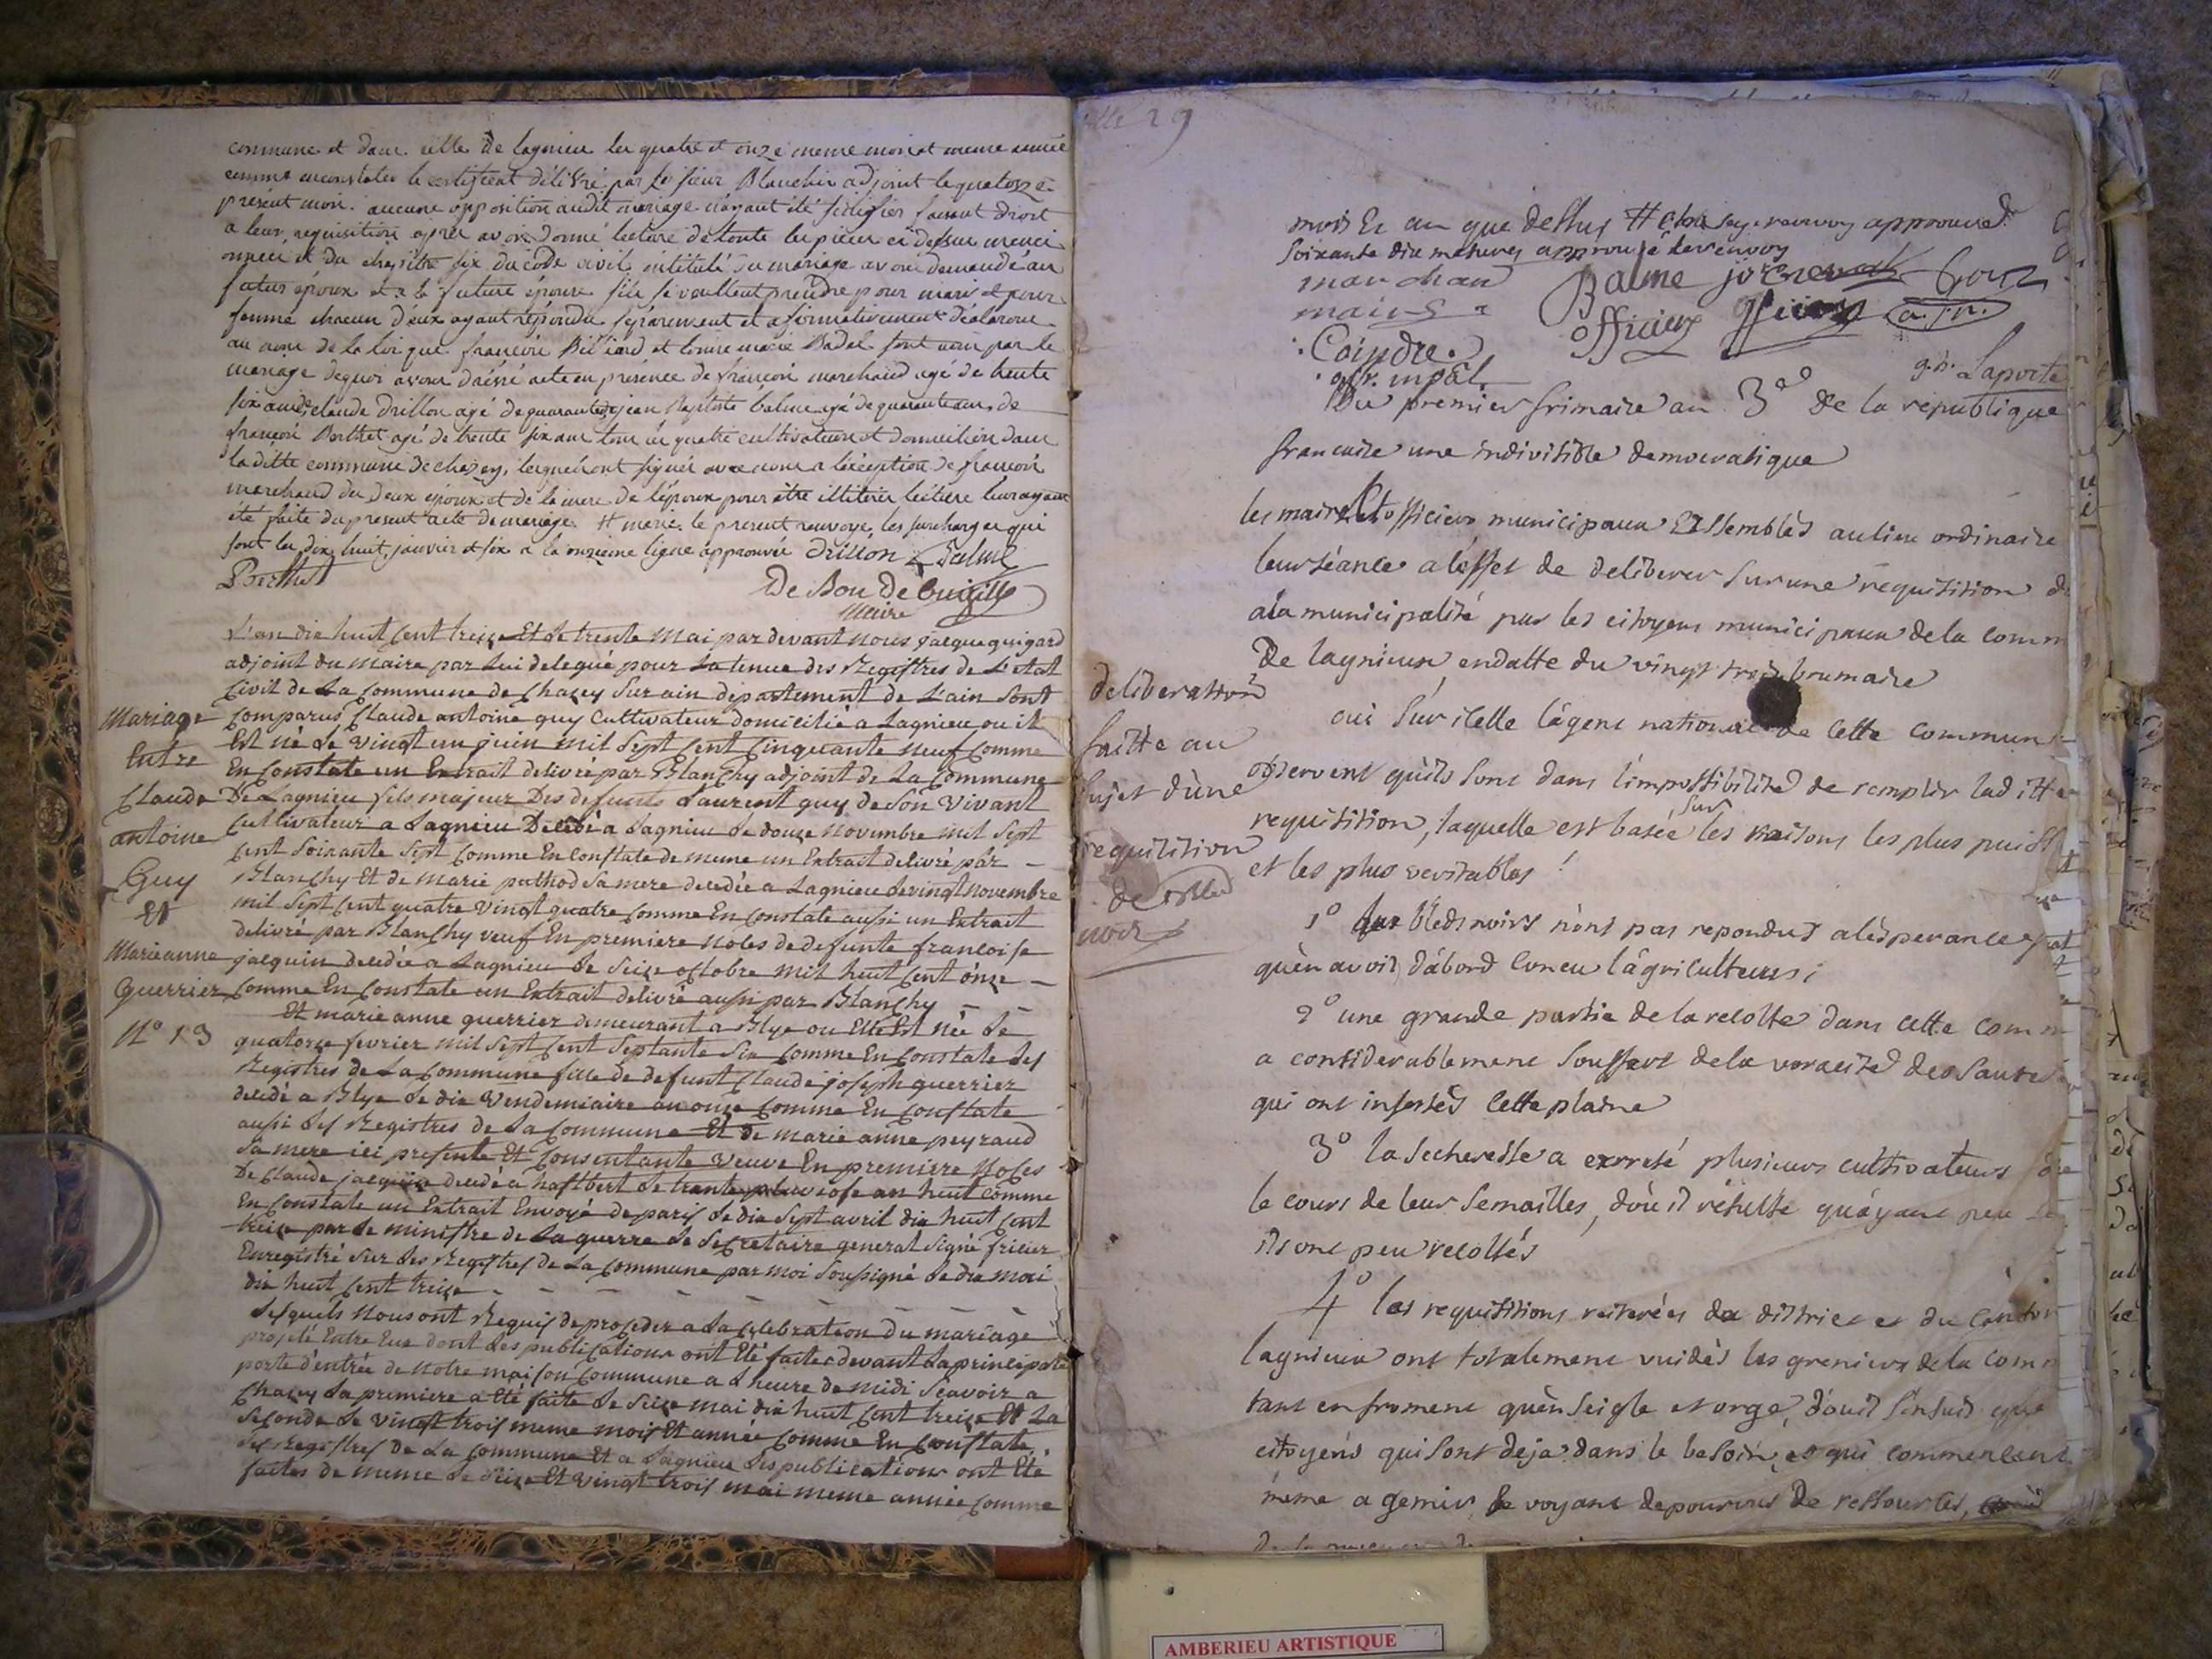 commune et dans celle de lagnieu les quatre et onze meme mois et meme année
comme en constater le certificat délivré par le sieur Blanchin adjoint le quatorze
présent mois. aucune opposition audit mariage n'ayant été faisant droit
a leur requisition apres avoir donné lecture de toute les pieces ci dessus menci
onnées et du chapitre six du code civil intitulé du mariage avons demandé au
futur époux et a la future épouse s'ils se veullent prendre pour mari et pour
femme chacun d'eux ayant répondu séparement et afirmativement déclarons
au nom de la loi que françois Billiard et marie Badel sont unis par le
mariage dequoi avons dressé acte en presence de françois marchand agé de trente
six ans de claude Drillon agé de quarante jean Baptiste balme agé de quarante ans de
françois Berthet agé de trente six ans tous les quatre cultivateurs et domiciliés dans
la ditte commune de chazey, lesquels ont signés avec nous a l'exception de françois
marchand des deux époux et de la mere de l'époux pour être illiterés lecture leur ayant
été faite du present acte de mariage. # marie le present renvoye, les surcharges qui
sont les dix huit, janvier et six a la onzieme ligne approuvée Drillon Balme
Berthet
De Bon
Maire
L'an dix huit cent treize Et Le trente Mai par devant nous Jacque guigard
adjoint du Maire par Lui delegué pour La tenue des Registres de L'état
Civil de La Commune de Chazey Sur ain département de L'ain Sont
Mariage Comparus Claude antoine guy Cultivateur domicilié a Lagnieu ou il
Est né Le Vingt un juin mil Sept Cent Cinquante neuf Comme
Entre En Constate un Extrait delivré par Blanchy adjoint de La Commune
Claude De Lagnieu fils majeur Des defunts Laurent guy de Son Vivant
Cultivateur a Lagnieu Décédé a Lagnieu Le douze Novembre mil Sept
antoine Cent Soixante Sept Comme En Constate de meme un Extrait delivré par
Guy Blanchy Et de Marie pathod Sa mere decedée a Lagnieu Le vingt novembre
Et mil Sept Cent quatre Vingt quatre Comme En Constate aussi un Extrait
delivré par Blanchy veuf En premiere Noces de defunte francoise
Marie anne jacquin decedée a Lagnieu Le Seize octobre mil huit Cent onze
Guerrier Comme En Constate un Extrait delivré aussi par Blanchy
Et marie anne guerrier demeurant a Blye ou Elle Est née Le
N° 13 quatorze fevrier mil Sept Cent Septante Six Comme En Constate Les
Registres de La Commune fille de defunt Claude joseph guerrier
decedé a Blye Le dix Vendemiaire an onze Comme En Constate
aussi Les Registres de La Commune Et de marie anne peyraud
Sa mere ici presente Et Consentante Veuve En premiere Noces
De Claude jacquin decedé a Le trante pluviose an huit Comme
En Constate un Extrait Envoyé de paris Le dix Sept avril dix huit Cent
treize par Le ministre de La guerre Le Secretaire general Signé
Enregistré Sur Les Registres de La Commune par moi Soussigné Le dix mai
dix huit Cent treize
Lesquels Nous ont Requis de proceder a La Celebration du mariage
projeté Entre Eux dont Les publications ont Eté faites devant La principale
porte d'entrée de Notre maison Commune a L'heure de midi Scavoir a
Chazey La premiere a Eté faite Le Seize mai dix huit Cent treize Et La
Seconde Le Vingt trois meme mois Et année Comme En Constate
Les Registres de La Commune Et a Lagnieu Les publications ont Eté
faites de meme Le Seize Et Vingt trois mai meme année Comme
29
mois Et an que dessus # renvoy approuvé
Soixante dix mesures approuvé le renvoy
marchan Balme
maire officier
Coindre
off. mpal
g.n. Laporte
Du premier frimaire an 3e de la republique
francaise une indivisible democratique
les maire Et officiers municipaux assemblés au lieu ordinaire
leur séance a l'effet de deliberer sur une requisition
a la municipalité par les citoyens municipaux de la comm
De lagnieux, en datte du vingt trois brumaire
deliberation
faitte au
sujet d'une
requisition
de bled
noir
oui sur icelle l'agent national de cette commun
observent qu'ils sont dans l'impossibilité de remplir laditte
requisition, laquelle est basée sur les raisons les plus puiss
et les plus veritables!
1° Les bleds noirs n'ont pas repondus a l'esperance
qu'en avoit d'abord concu l'agriculteurs;
2° une grande partie de la recolte dans cette comm
a considerablement souffert de la voracité des saute
qui ont infestés cette plaine
3° la secheresse a plusieurs cultivateurs
le cours de leur semailles, d'où il résulte qu'ayant peu
ils ont peu recoltés
4° les requisitions reiterées du district et du canton
lagnieux ont totalement vuidés les greniers de la comm
tant en froment qu'en seigle et orge, d'ou il s'ensuit que
citoyens qui sont deja dans le besoin, et qui commencent
même a gemir, se voyant depourvus de ressources,
AMBERIEU ARTISTIQUE